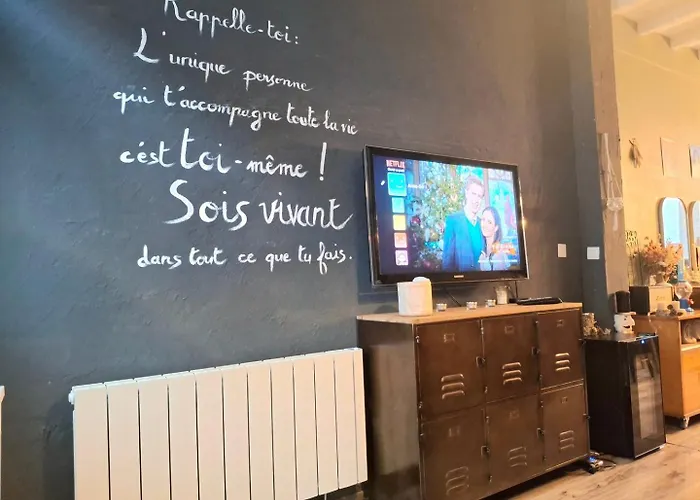 Rappelle-toi:
L'unique personne
qui t'accompagne toute la vie
c'est toi-même !
Sois vivant
dans tout ce que tu fais.
NETFLIX
SAMSUNG